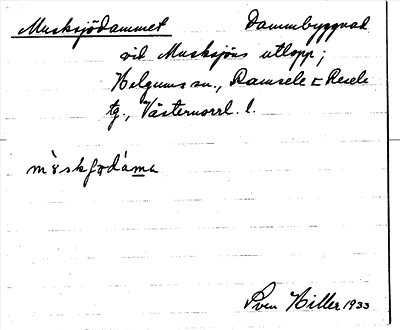 Musksjödammet Dammbyggnad
vid Musksjöns utlopp;
Helgums sn., Ramsele o Resele
tg., Västernorrl. l.
Sven Hiller 1933